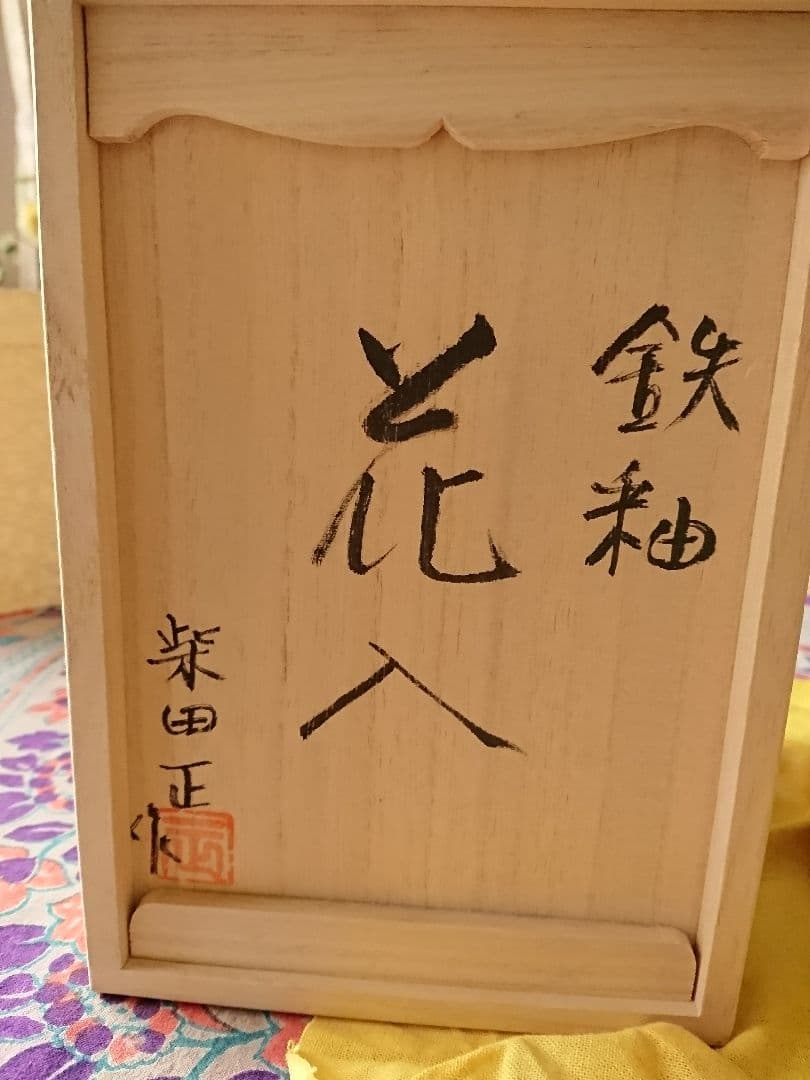 鉄釉
花入
柴田正作